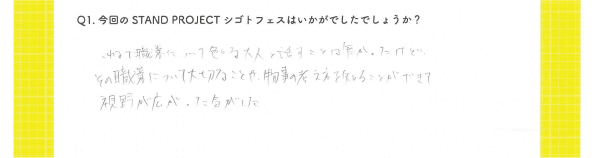 Q1. 今回の STAND PROJECT シゴトフェスはいかがでしたでしょうか？
職業について色んな大人と話すことは無かったけど、
その職業について大切なことや、物事の考え方を知ることができて
視野が広がった気がした